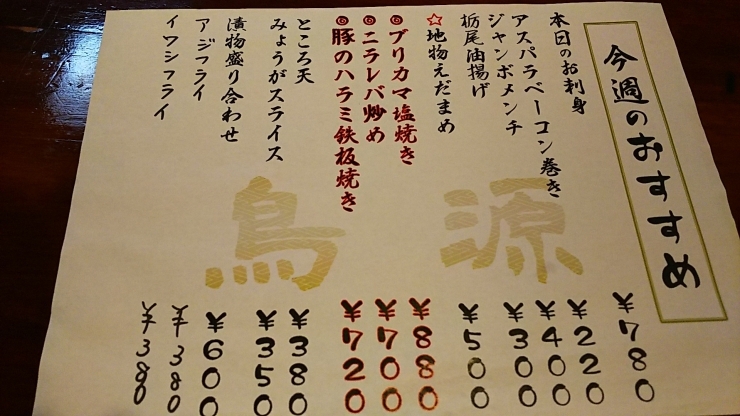 今週のおすすめ
本日のお刺身 ¥780
アスパラベーコン巻き ¥220
ジャンボメンチ ¥400
栃尾油揚げ ¥300
☆地物えだまめ ¥500
◎ブリカマ塩焼き ¥880
◎ニラレバ炒め ¥700
◎豚のハラミ鉄板焼き ¥720
ところ天 ¥380
みょうがスライス ¥350
漬物盛り合わせ ¥600
アジフライ ¥380
イワシフライ ¥380
鳥源